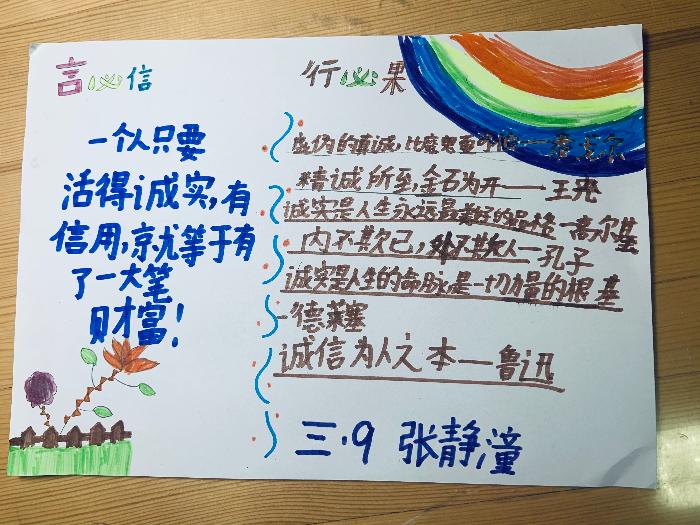 言必信 行必果
一个人只要
活得诚实,有
信用,就等于有
了一大笔
财富!
虚伪的真诚,比魔鬼更可怕——泰戈尔
精诚所至,金石为开——王充
诚实是人生永远最美好的品格—高尔基
内不欺己,外不欺人—孔子
诚实是人生的命脉,是一切力量的根基
—德莱塞
诚信为人之本——鲁迅
三.9 张静潼